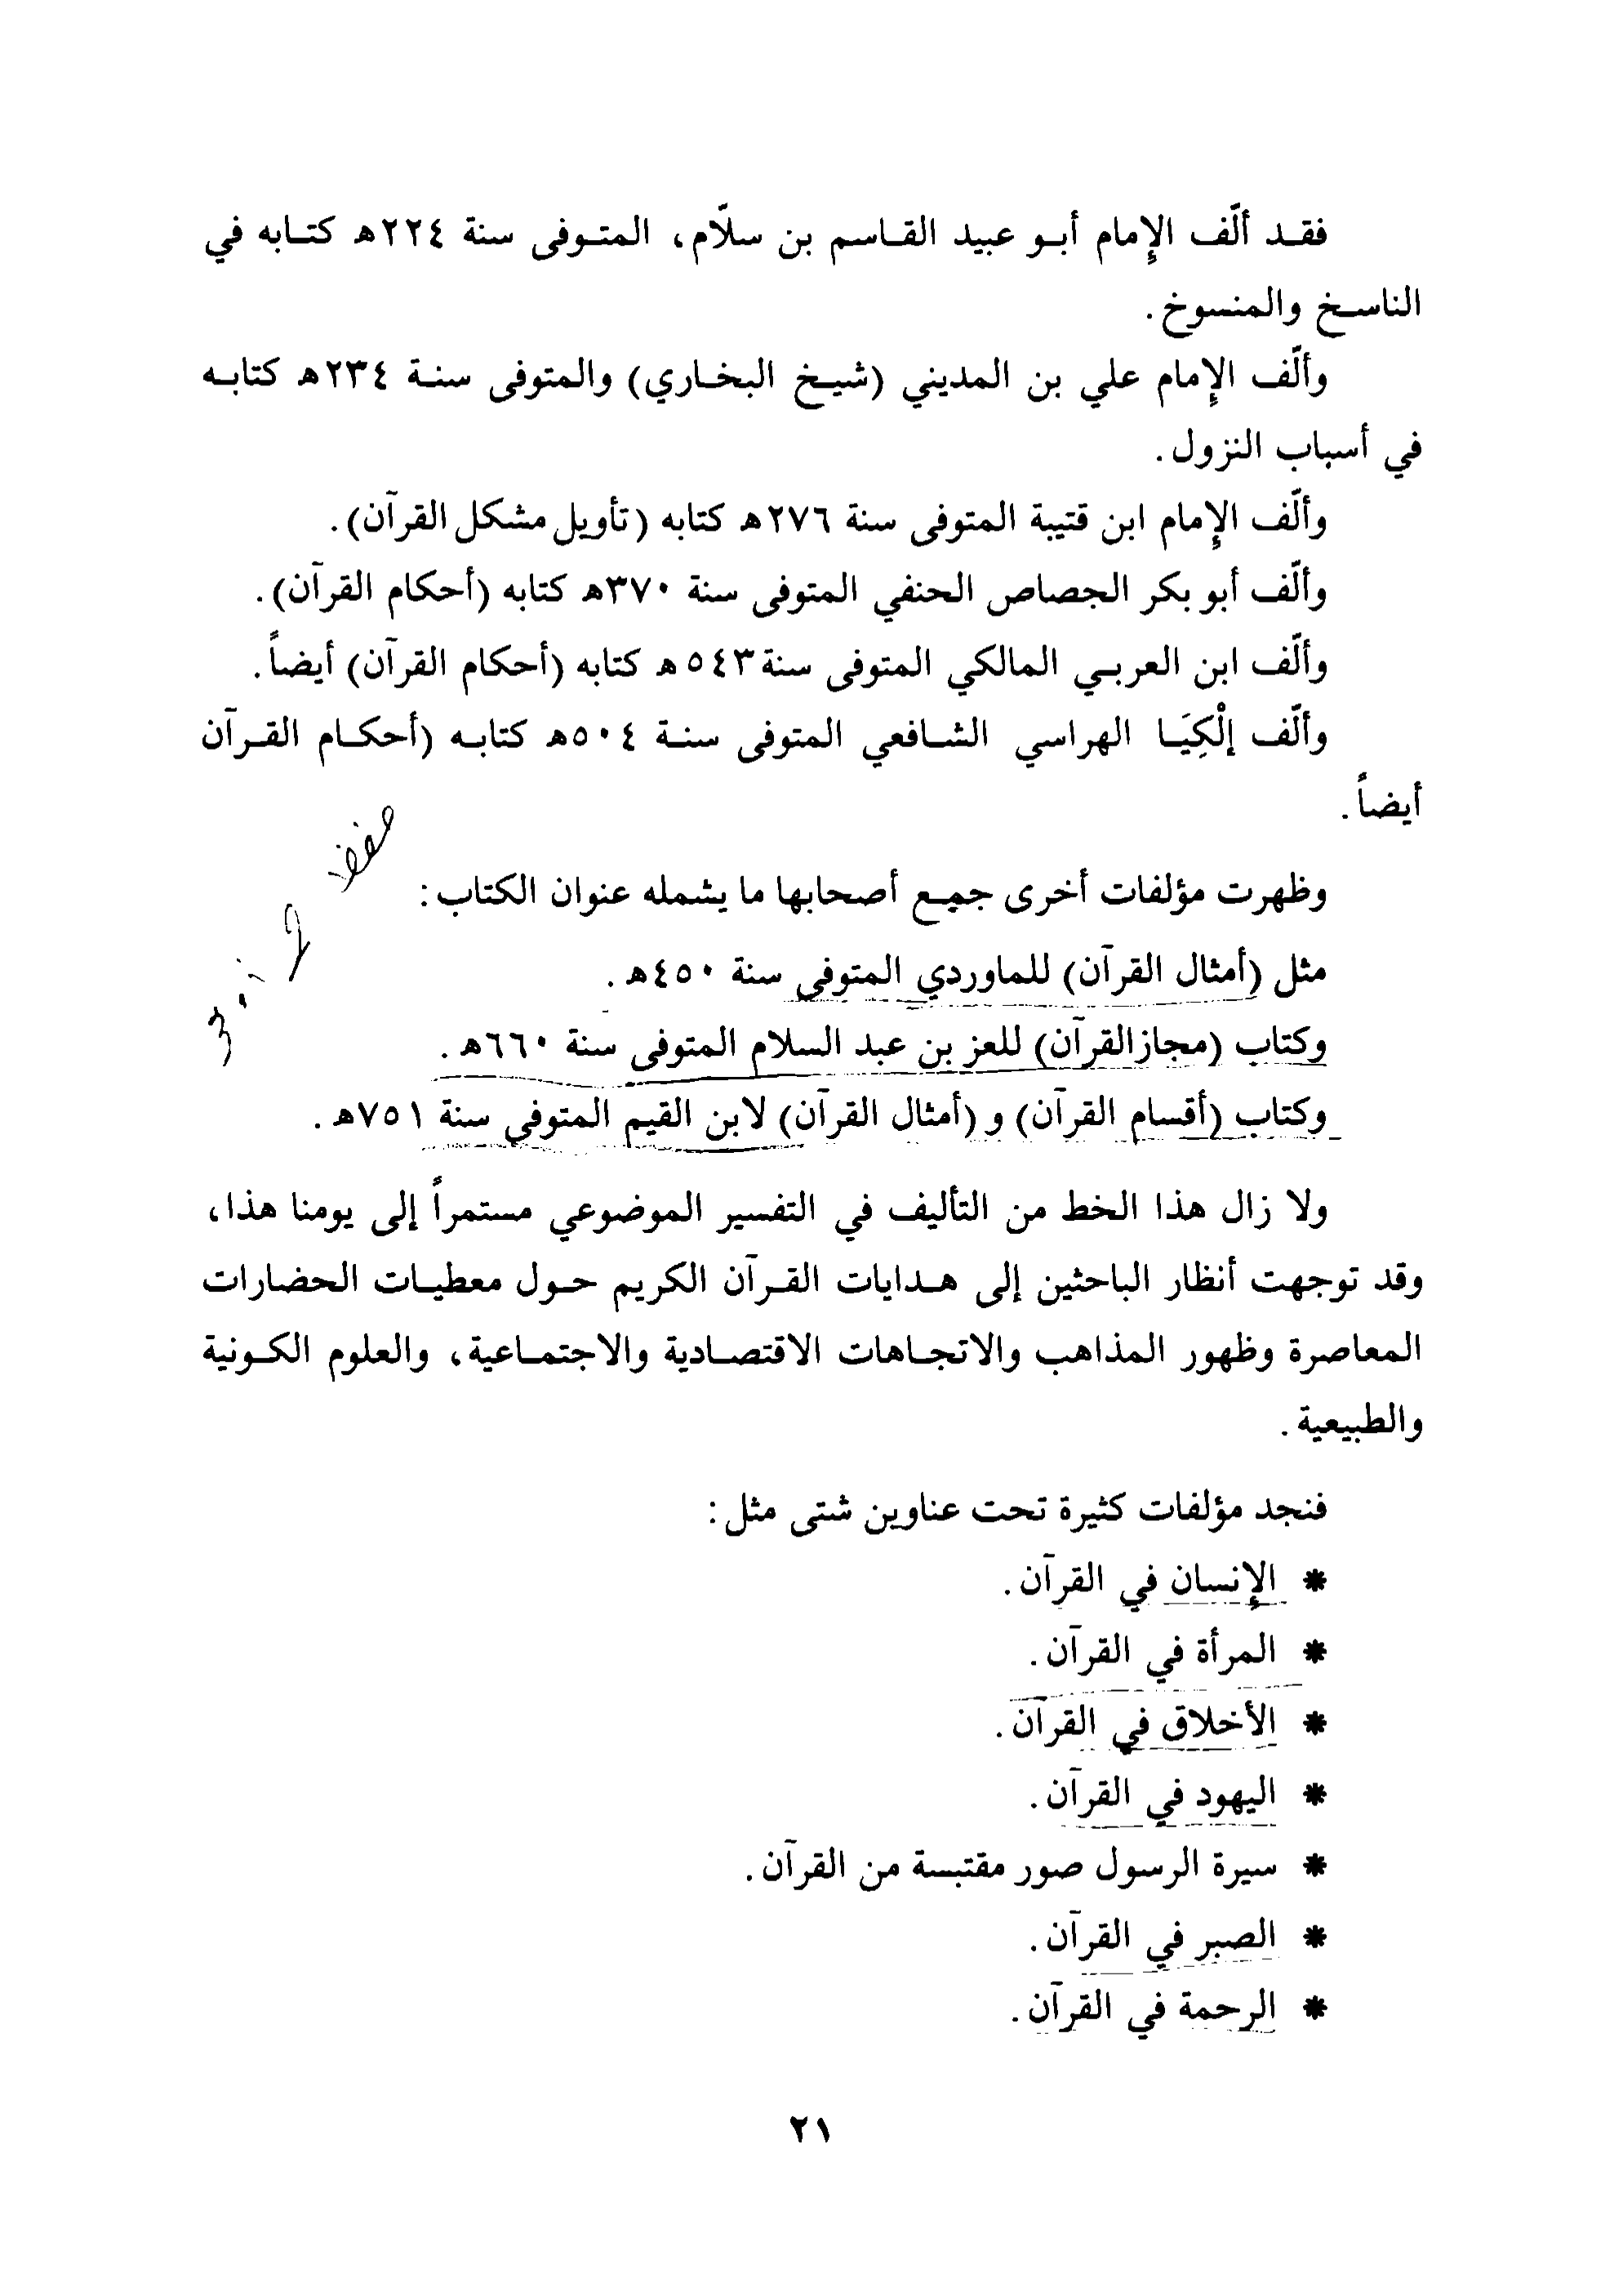 فقد ألّف الإمام أبو عبيد القاسم بن سلّام، المتوفى سنة ٢٢٤هـ كتابه في
الناسخ والمنسوخ.
وألّف الإمام علي بن المديني (شيخ البخاري) والمتوفى سنة ٢٣٤هـ كتابه
في أسباب النزول.
وألّف الإمام ابن قتيبة المتوفى سنة ٢٧٦هـ كتابه (تأويل مشكل القرآن).
وألّف أبو بكر الجصاص الحنفي المتوفى سنة ٣٧٠هـ كتابه (أحكام القرآن).
وألّف ابن العربي المالكي المتوفى سنة ٥٤٣هـ كتابه (أحكام القرآن) أيضاً.
وألّف إلْكِيَا الهراسي الشافعي المتوفى سنة ٥٠٤هـ كتابه (أحكام القرآن
أيضاً.
وظهرت مؤلفات أخرى جميع أصحابها ما يشمله عنوان الكتاب:
مثل (أمثال القرآن) للماوردي المتوفى سنة ٤٥٠هـ.
وكتاب (مجاز القرآن) للعز بن عبد السلام المتوفى سنة ٦٦٠هـ.
وكتاب (أقسام القرآن) و (أمثال القرآن) لابن القيم المتوفى سنة ٧٥١هـ.
ولا زال هذا الخط من التأليف في التفسير الموضوعي مستمراً إلى يومنا هذا،
وقد توجهت أنظار الباحثين إلى هدايات القرآن الكريم حول معطيات الحضارات
المعاصرة وظهور المذاهب والاتجاهات الاقتصادية والاجتماعية، والعلوم الكونية
والطبيعية.
فنجد مؤلفات كثيرة تحت عناوين شتى مثل:
* الإنسان في القرآن.
* المرأة في القرآن.
* الأخلاق في القرآن.
* اليهود في القرآن.
* سيرة الرسول صور مقتبسة من القرآن.
* الصبر في القرآن.
* الرحمة في القرآن.
٢١